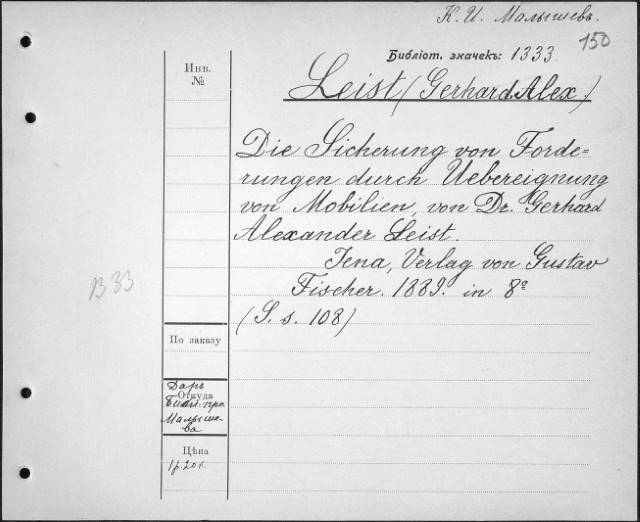 К. И. Малышевъ.
150
Библіот. значекъ: 1333.
Инв.
№
Leist (Gerhard Alex.)
Die Sicherung von Forde=
rungen durch Uebereignung
von Mobilien, von Dr. Gerhard
Alexander Leist.
Jena, Verlag von Gustav
Fischer. 1889. in 8º
(S. s. 108)
B 33
По заказу
Даръ
Откуда
Библ. пра
Малыше-
ва
Цѣна
1 р. 20 к.